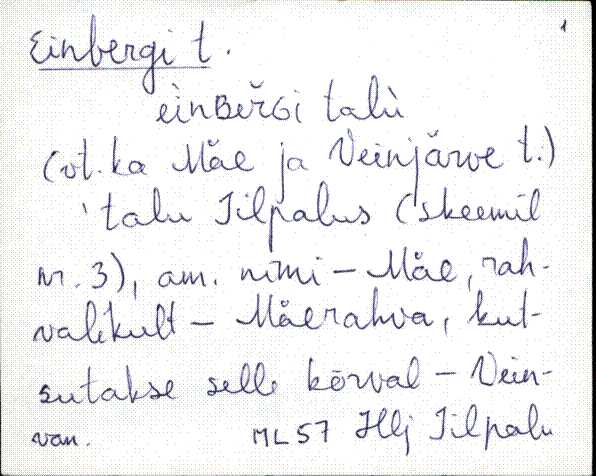 1
Einbergi t.
èinBeřGi talù
(vt. ka Mäe ja Veinjärve t.)
talu Jilpalus (skeemil
nr. 3), am. nimi – Mäe, rah-
valikult – Mäerahva, kut-
sutakse selle kõrval – Vein-
van. ML 57 Hlj Jilpalu